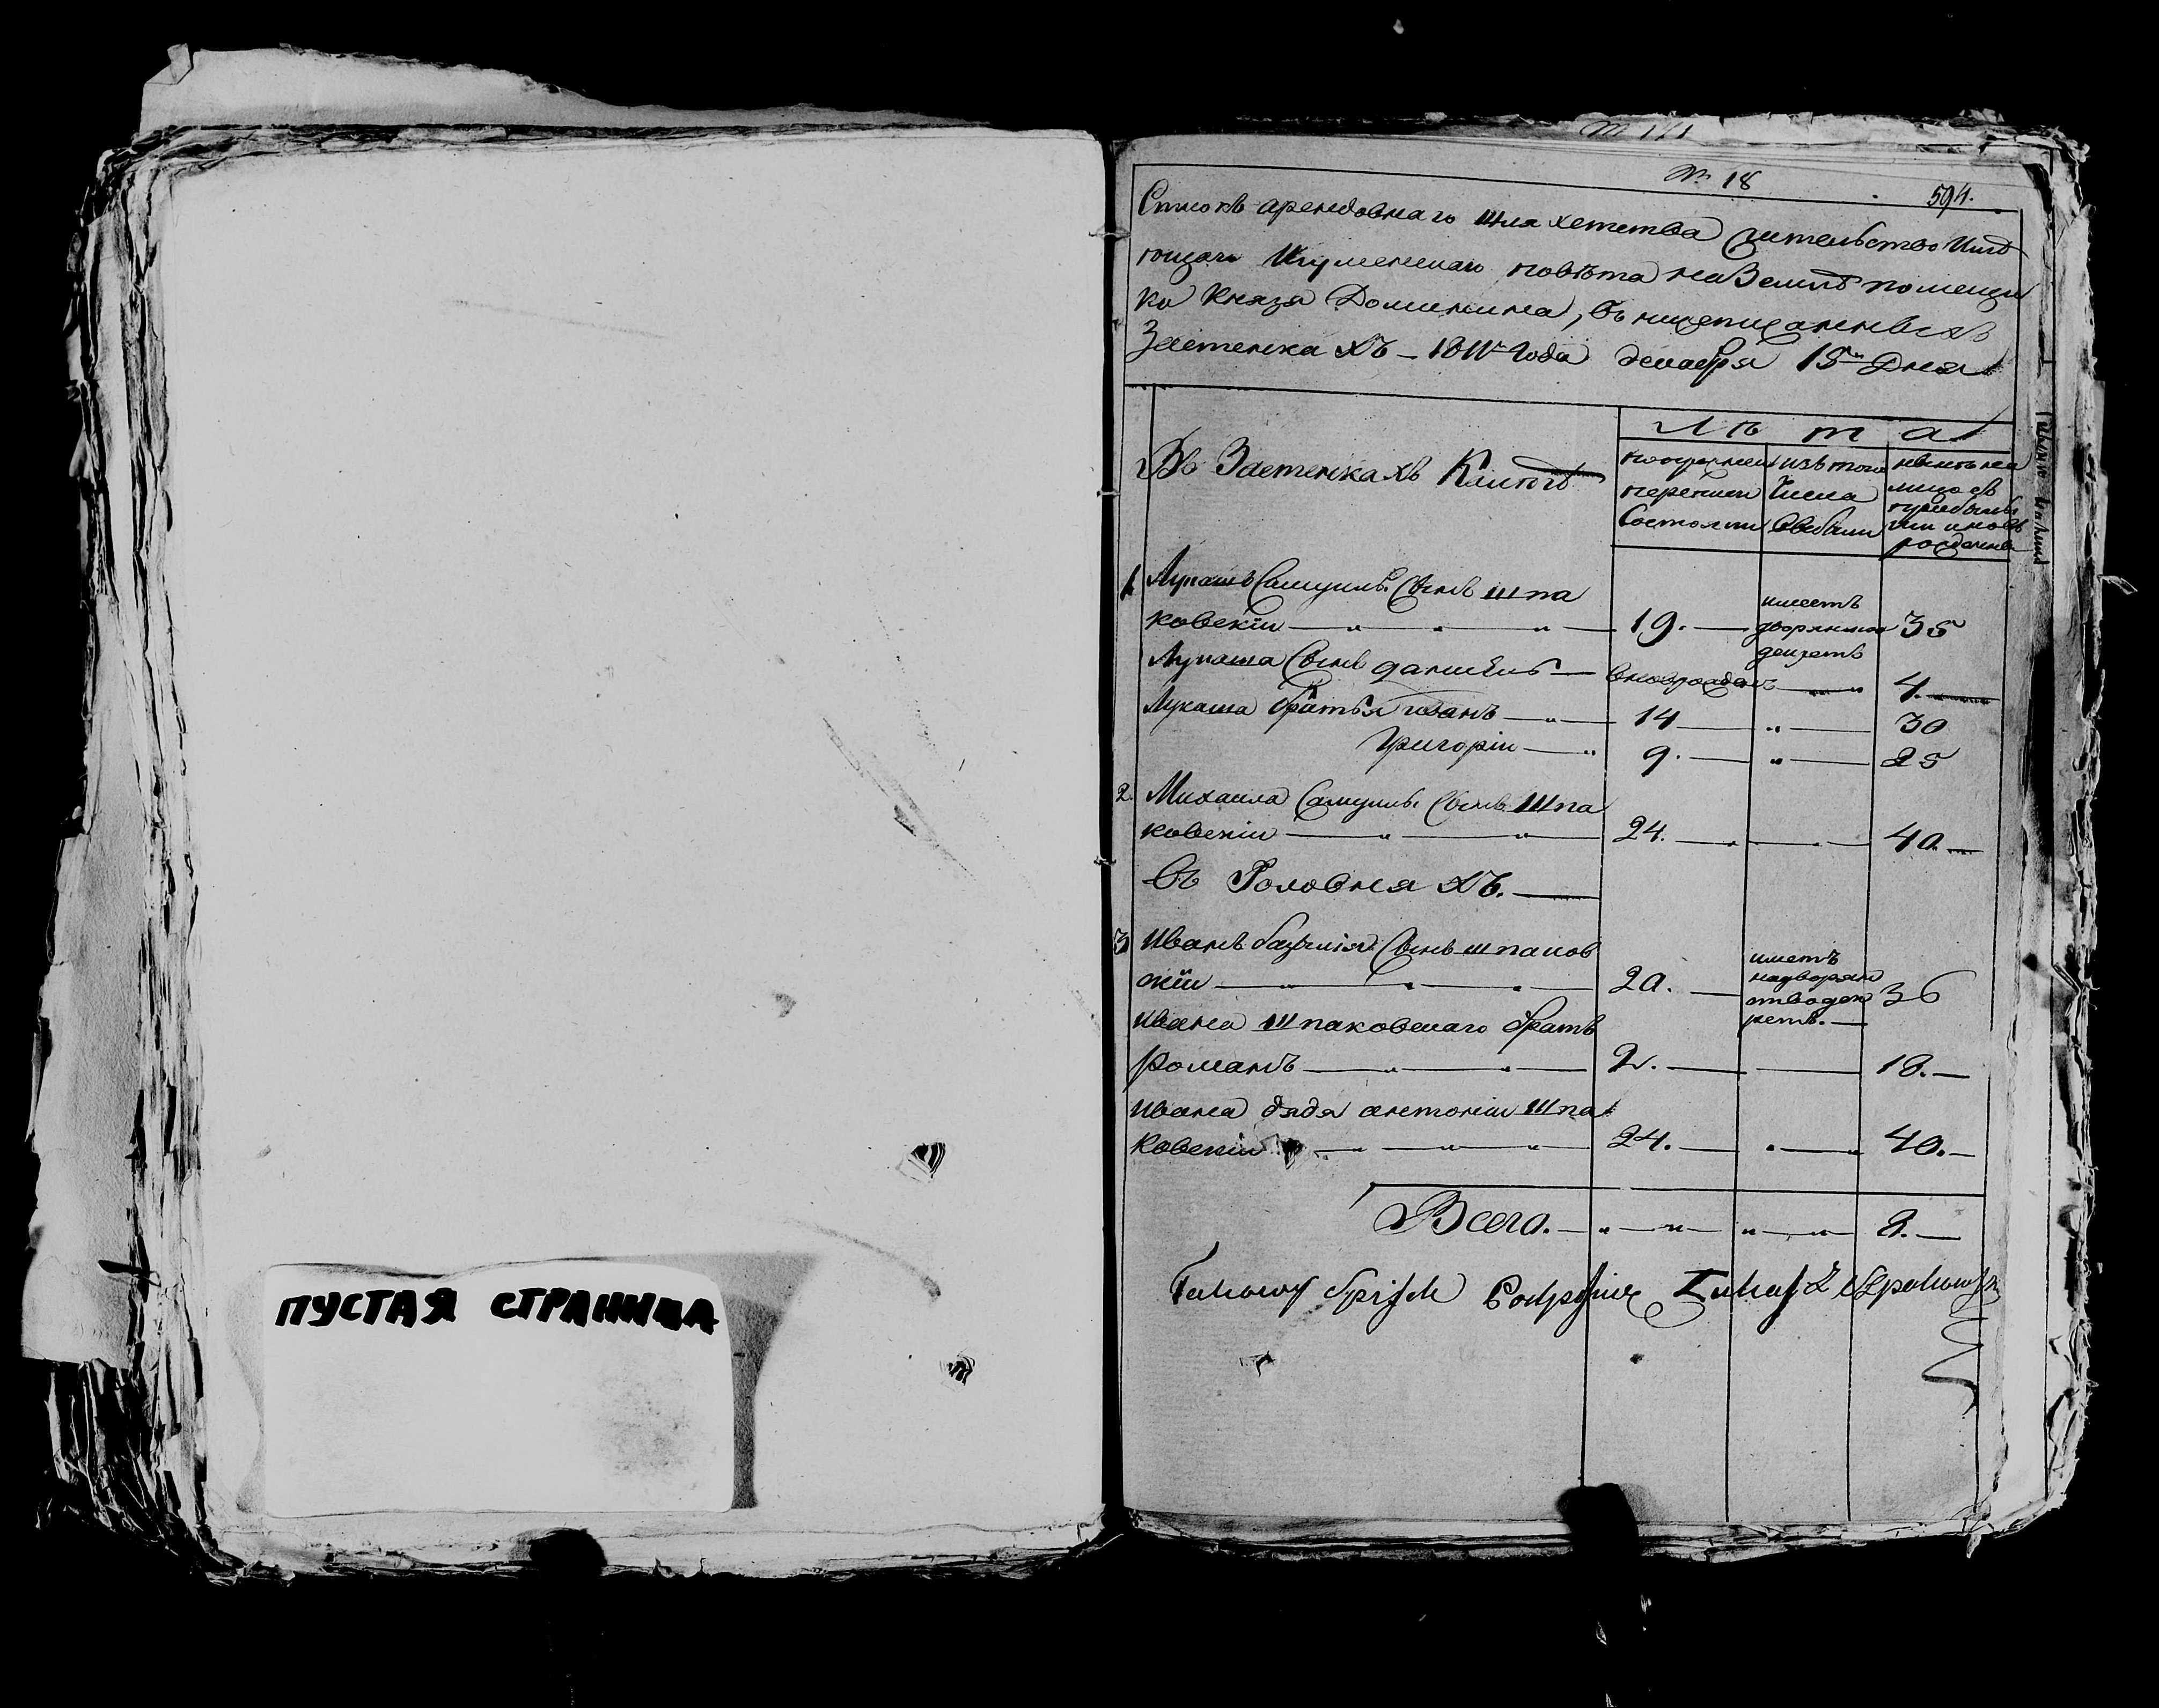 ПУСТАЯ СТРАНИЦА
№ 18
594.
Списокъ арендовнаго шляхетства жительство имѣ
ющаго Игуменскаго повѣта на Землѣ помещи
ка Князя Доминика, въ нижеписанныхъ
Застенкахъ – 1811го Года декабря 15го Дня
Лѣта
Въ Застенкахъ
попрежнеи переписи Состояли
изъ того Числа выбыли
ныне на лицо съ прибылы ми и новъ рожденны
1. Лукашъ Самуилъ. Сынъ шпа
ковскiи — 19. — имеетъ дворянскои декретъ 35
Лукаша Сынъ даниель — вновърожденъ — 4.
Лукаша братья иванъ — 14 — 30
Григорiи — 9. — 25
2. Михаила Самуилъ. Сынъ Шпа
ковскiи — 24. — 40.
въ Головняхъ.
3 Иванъ Сынъ шпаков
скiи — 20. — иметъ надворян ство дек ретъ. — 36
Ивана Шпаковскаго братъ
Романъ — 2. — 18.
Ивана дядя антонiи Шпа
ковскiи — 24. — 40.
Всего. — 8.